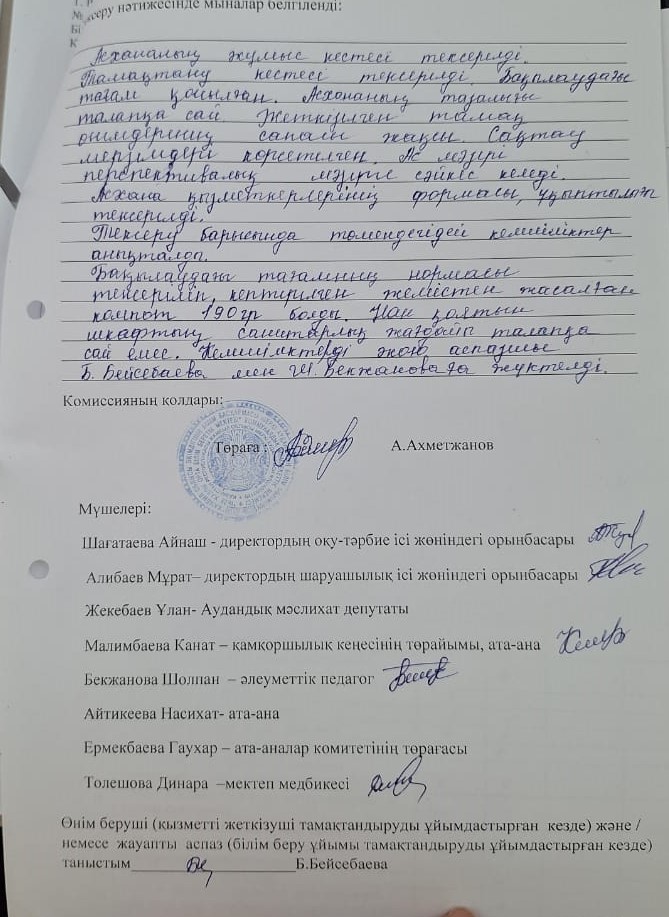 ксеру нәтижесінде мыналар белгіленді:
Асхананың жұмыс кестесі тексерілді.
Тамақтану кестесі тексерілді. Бақылаудағы
тағам қойылған. Асхананың тазалығы
талапқа сай. Жеткізілген тамақ
өнімдерінің сапасы жақсы. Сақтау
мерзімдері көрсетілген. Ас мәзірі
перспективалық мәзірге сәйкес келеді.
Асхана қызметкерлерінің формасы, ұқыптылығы
тексерілді.
Тексеру барысында төмендегідей кемшіліктер
анықталды.
Бақылаудағы тағамның нормасы
тексеріліп, кептірілген жемістен жасалған
компот 190гр болды. Нан қоятын
шкафтың санитарлық жағдайы талапқа
сай емес. Кемшіліктерді жою аспазшы
Б. Бейсебаева мен Ш. Бекжановаға жүктелді.
Комиссияның қолдары:
Төраға: А.Ахметжанов
Мүшелері:
Шағатаева Айнаш - директордың оқу-тәрбие ісі жөніндегі орынбасары
Алибаев Мұрат– директордың шаруашылық ісі жөніндегі орынбасары
Жекебаев Ұлан- Аудандық мәслихат депутаты
Малимбаева Канат – қамқоршылық кеңесінің төрайымы, ата-ана
Бекжанова Шолпан – әлеуметтік педагог
Айтикеева Насихат- ата-ана
Ермекбаева Гаухар – ата-аналар комитетінің төрағасы
Толешова Динара –мектеп медбикесі
Өнім беруші (қызметті жеткізуші тамақтандыруды ұйымдастырған кезде) және /
немесе жауапты аспаз (білім беру ұйымы тамақтандыруды ұйымдастырған кезде)
таныстым Б.Бейсебаева